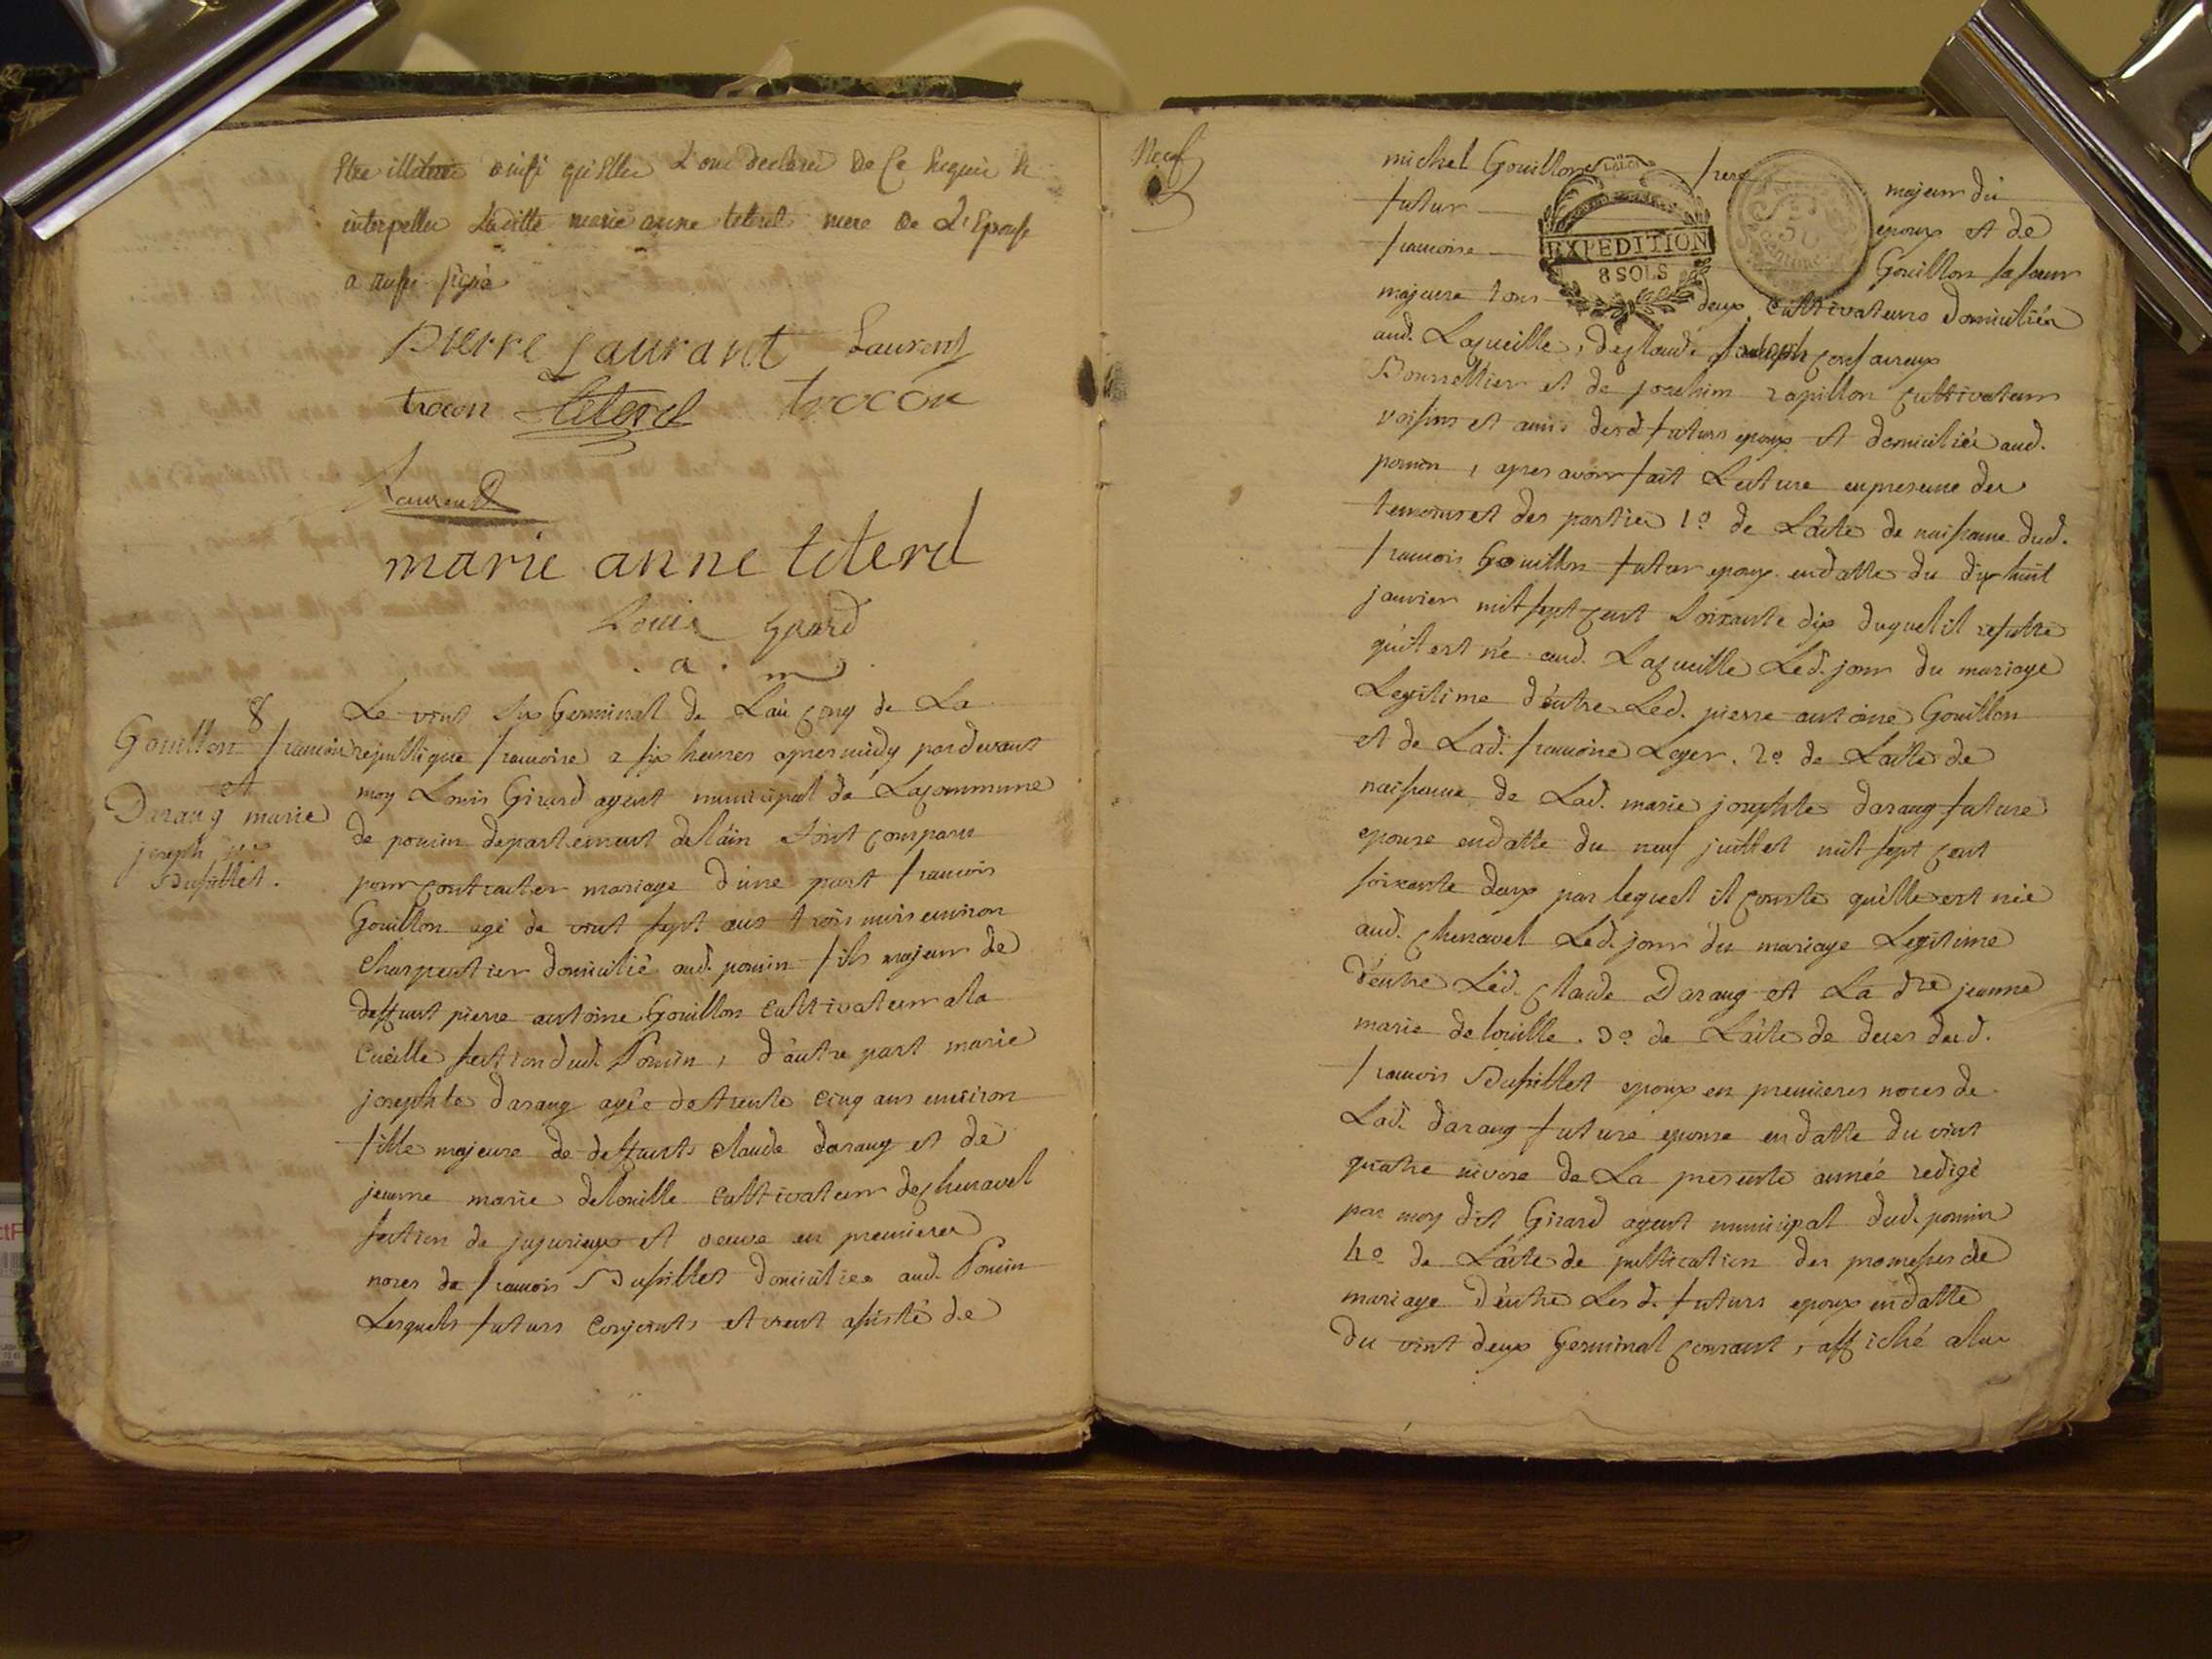 Etre illiterée ainsi qu'elles L'ont declarée De Ce Requise et
interpellée Laditte marie anne teterel mere De L'Epouse
a aussi signé
pierre Laurant Laurent
trocon teterel trocon
Laurent
marie anne teterel
Louis Girard
a. m
8
Gouillon francois
et
Darang marie
joseph vve
Bussillet.
Le vint six Germinal de L'an cinq de La
republique francoise a six heures apres midy pardevant
moy Louis Girard agent municipal de La commune
de poncin departement de l'ain sont comparu
pour contracter mariage d'une part francois
Gouillon agé de vint sept ans trois mois environ
charpentier domicilié aud. poncin fils majeur de
deffunt pierre antoine Gouillon cultivateur a la
cueille section dud. Poncin, d'autre part marie
josephte darang agée de trente cinq ans environ
fille majeure de deffunts claude darang et de
jeanne marie delouille cultivateur de chenavel
section de jujurieux et veuve en premieres
noces de francois Bussillet domiciliée aud. Poncin
Lesquels futurs conjoints etoient assisté de
Neuf
michel Gouillon frere majeur du
futur epoux et de
francoise Gouillon sa sœur
majeure tous deux cultivateurs domiciliés
aud. Lacueille, de claude joseph
Bourrellier et de joachim rapillon cultivateur
voisins et amis desd. futurs epoux et domicilié aud.
poncin, apres avoir fait Lecture en presence des
temoins et des parties 1º de L'acte de naissance dud.
francois Gouillon futur epoux en datte du dix huit
janvier mil sept cent soixante dix duquel il resulte
qu'il est né aud. Lacueille Led. jour du mariage
Legitime d'entre Led. pierre antoine Gouillon
et de Lad. francoise Leger. 2º de L'acte de
naissance de Lad. marie josephte darang future
epouse en datte du neuf juillet mil sept cent
soixante deux par lequel il conste qu'elle est née
aud. chenavel Led. jour du mariage Legitime
d'entre Led. claude Darang et La dte jeanne
marie delouille. 3º de L'acte de deces dud.
francois Bussillet epoux en premieres noces de
Lad. darang future epouse en datte du vint
quatre nivose de La presente année redigé
par moy dit Girard agent municipal dud. poncin
4º de L'acte de publication des promesses de
mariage d'entre Les d. futurs epoux en datte
du vint deux Germinal courant, affiché a la
LA LOI
EXPEDITION
8 SOLS